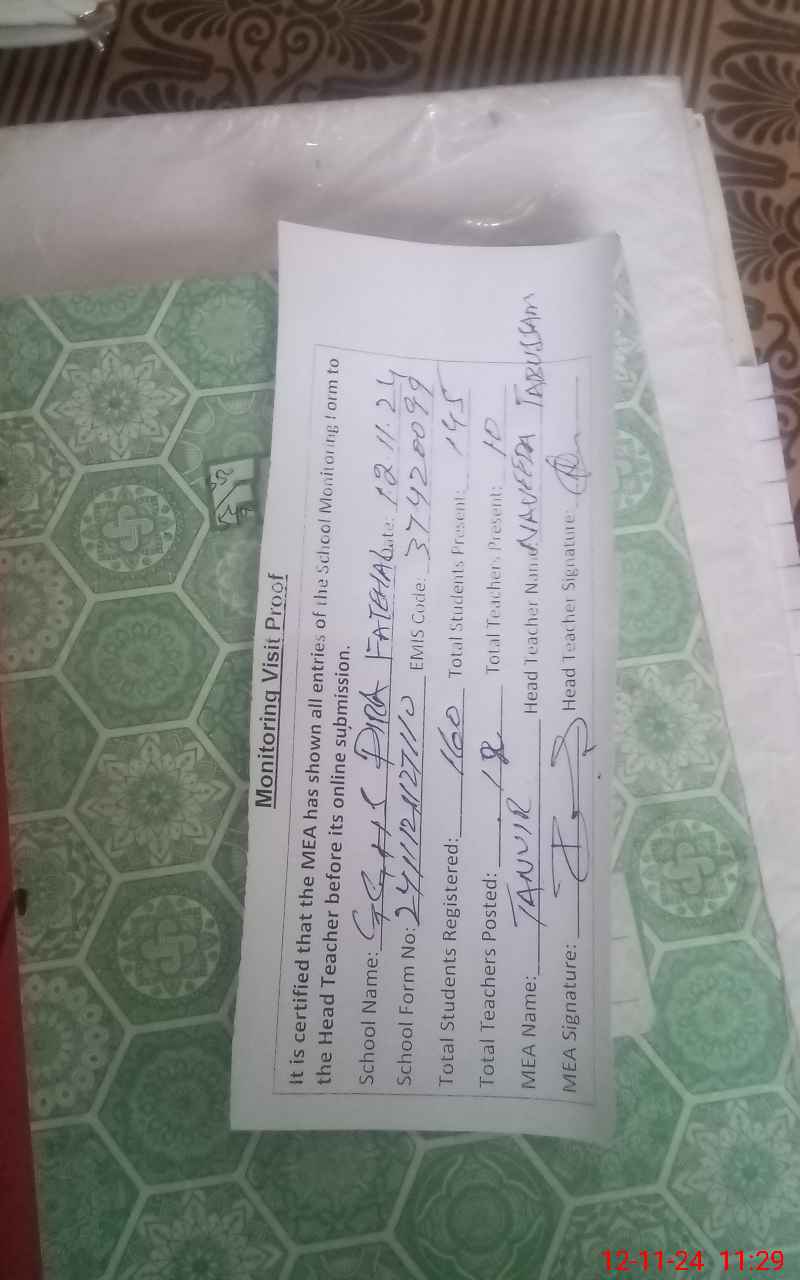 Monitoring Visit Proof
It is certified that the MEA has shown all entries of the School Monitoring Form to
the Head Teacher before its online submission.
School Name: GGHS DIRA FATEHAL Date: 12.11.24
School Form No: EMIS Code: 37420099
Total Students Registered: 160 Total Students Present: 145
Total Teachers Posted: Total Teachers Present: 10
MEA Name: TANVIR Head Teacher Name NAVEEDA TABUSSAM
MEA Signature: Head Teacher Signature:
12-11-24 11:29